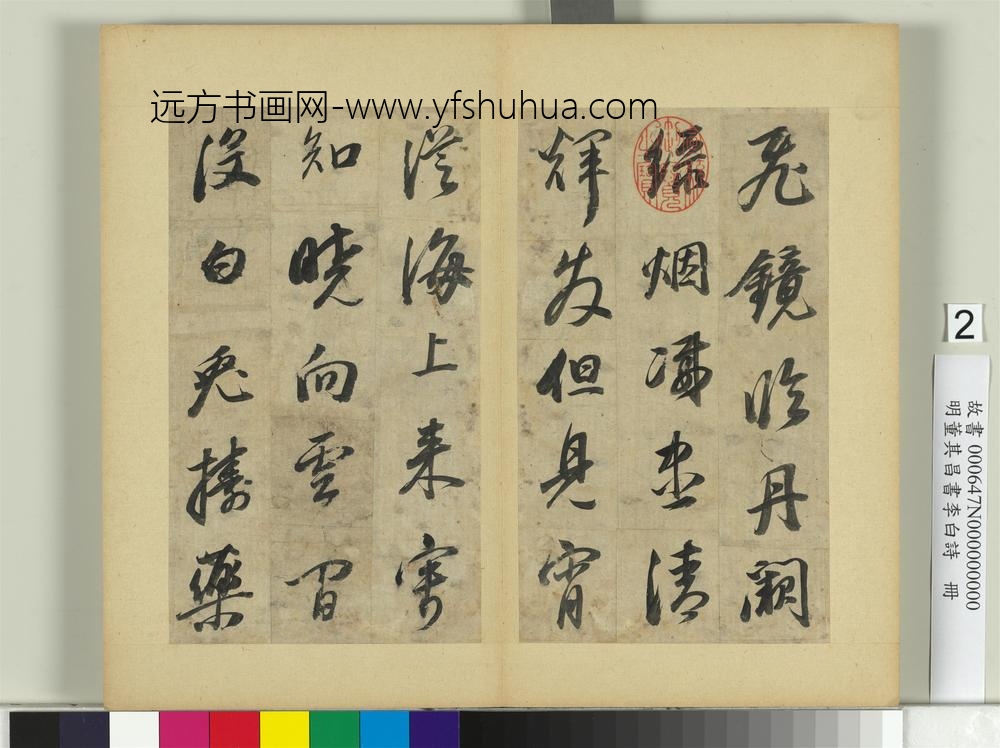 远方书画网-www.yfshuhua.com
飛鏡臨丹闕
緑烟滅盡清
輝發但見宵
從海上来寧
知曉向雲間
没白兔擣藥
2
故書 000647N000000000
明董其昌書李白詩 冊